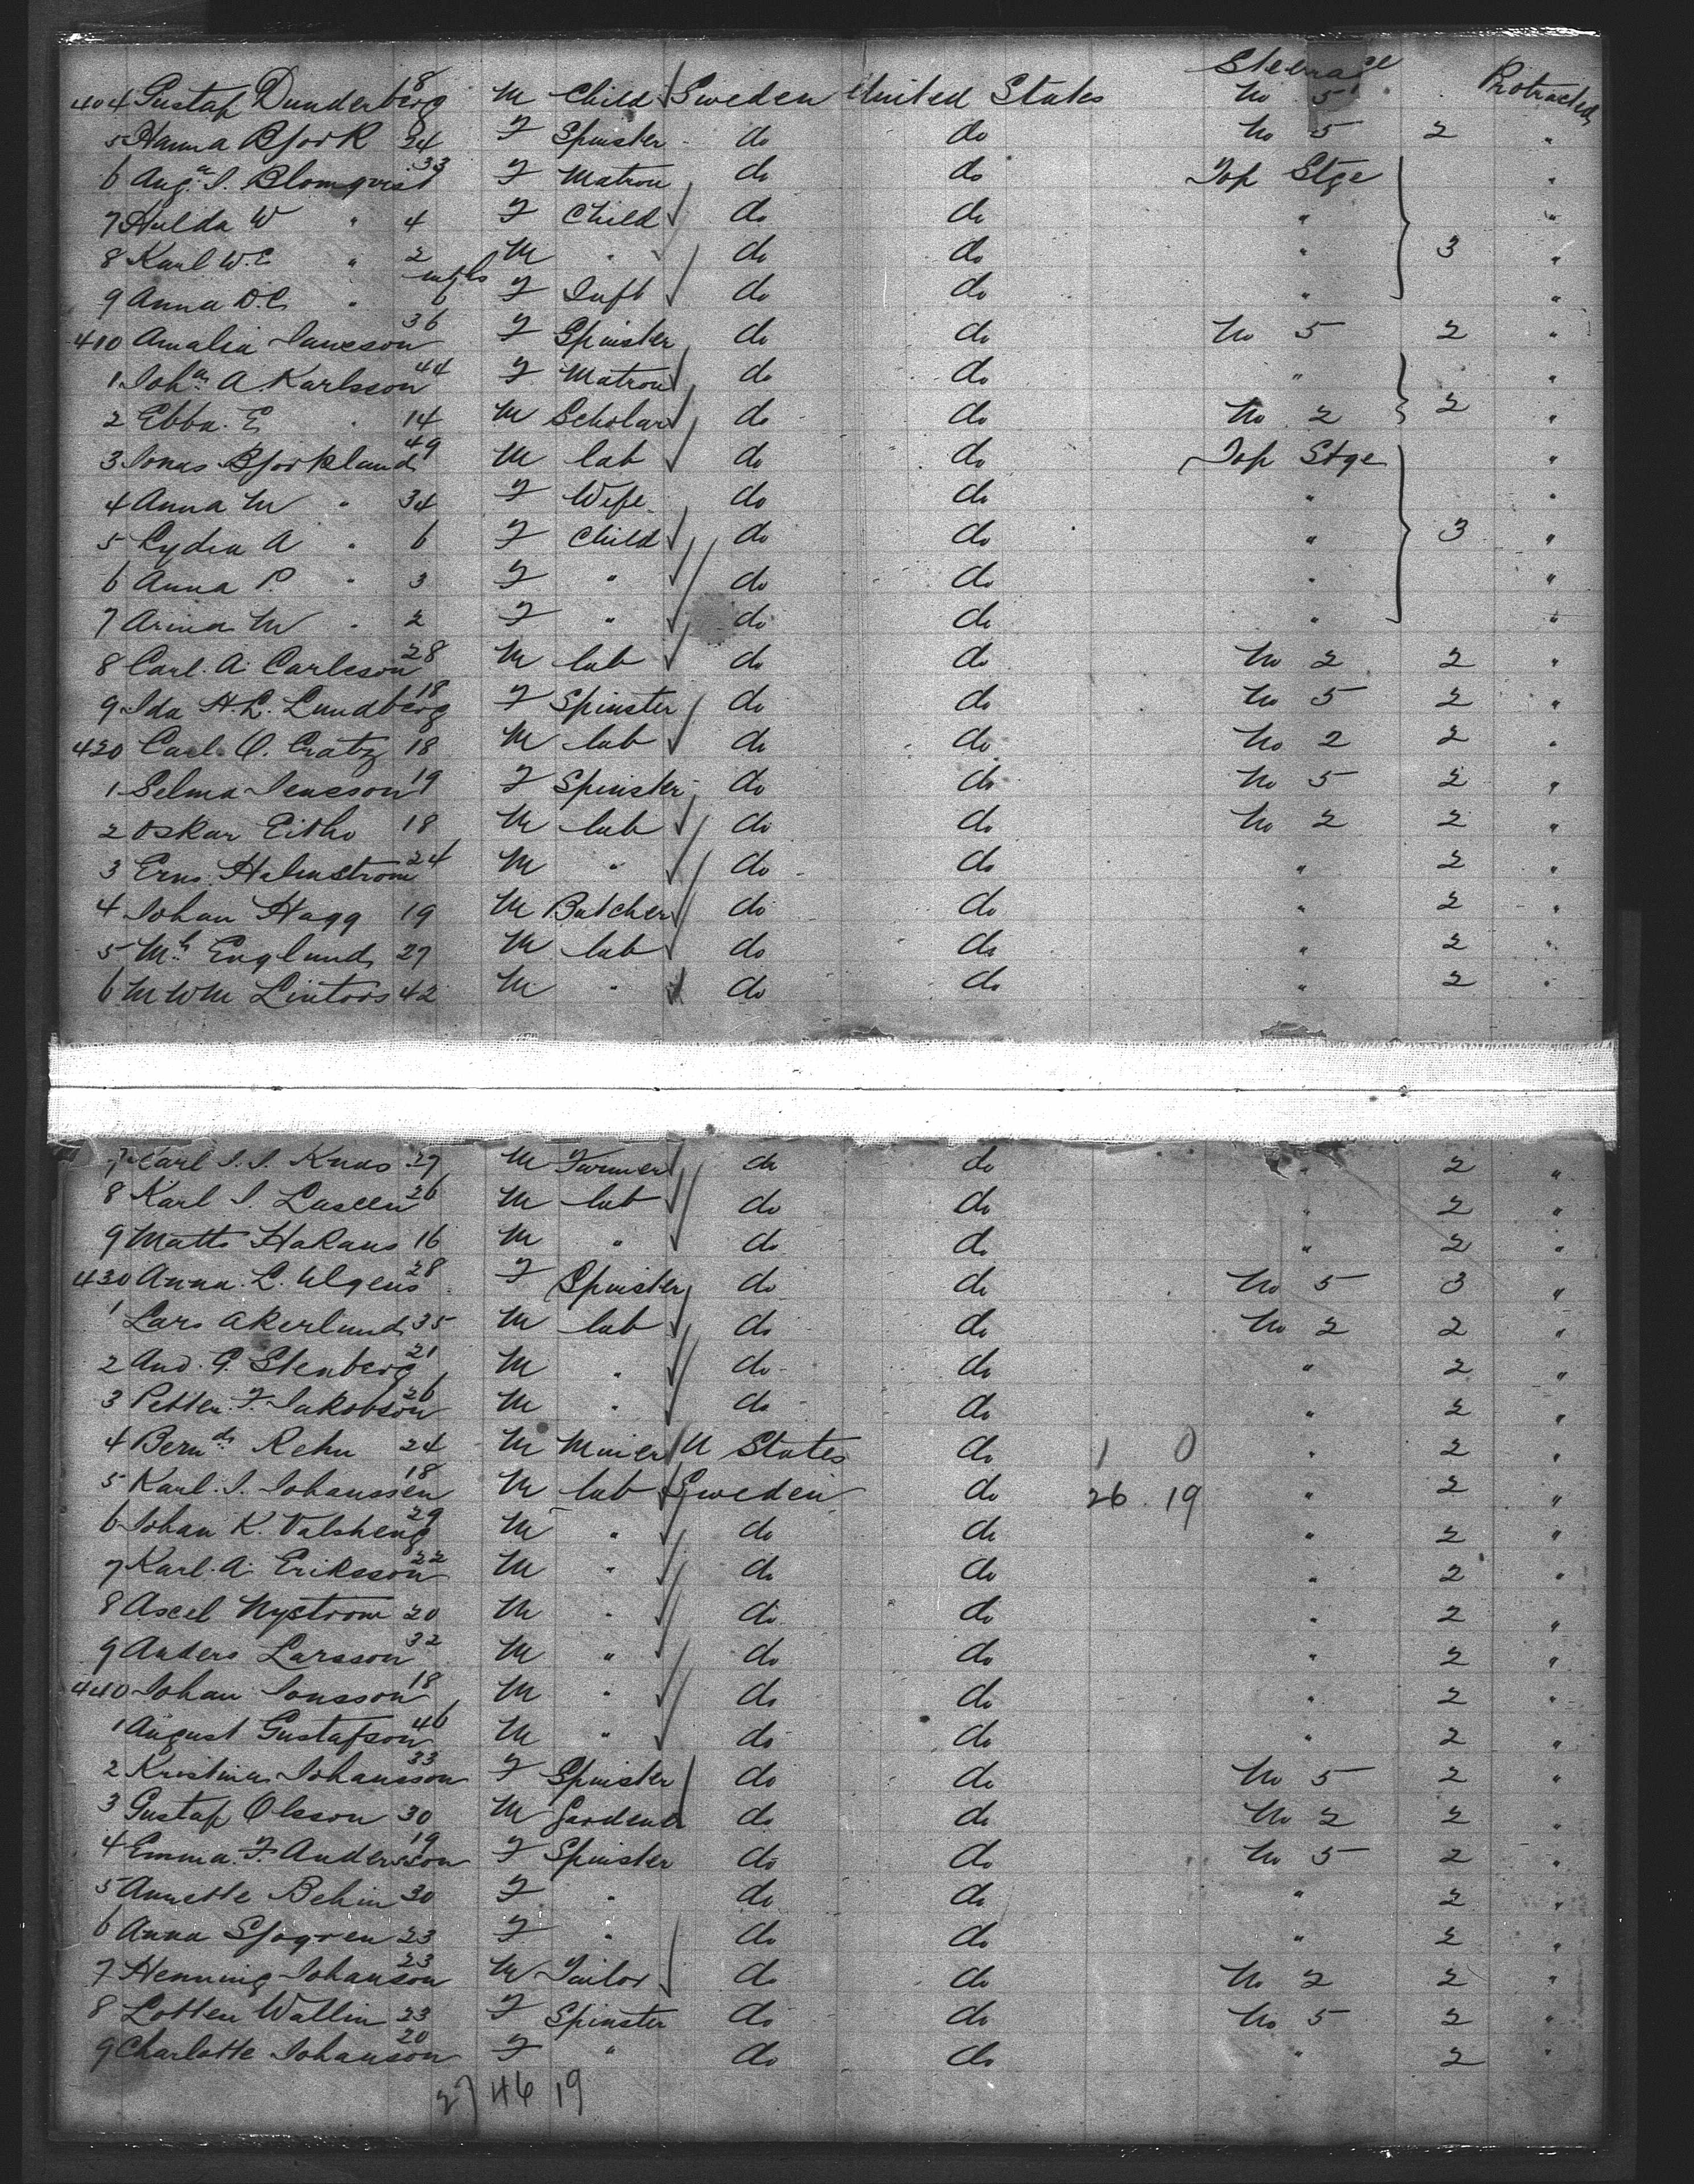 Steerage
404 Gustaf Dunderberg 8 M Child Sweden United States No 5 Protracted
5 Hanna Bjork 24 F Spinster do do No 5 2 "
6 Aug.a I. Blomqvist 33 F Matron do do Top Stge "
7 Hulda W " 4 F Child do do " "
8 Karl W.E " 2 M " do do " 3 "
9 Anna D.C. " 6 mths F Inft do do " "
410 Amalia Janeson 36 F Spinster do do No 5 2 "
1 Joha A. Karlsson 44 F Matron do do " "
2 Ebba. E " 14 M Scholar do do No 2 2 "
3 Jonas Bjorkland 49 M lab do do Top Stge "
4 Anna M " 34 F Wife do do " "
5 Lydia A " 6 F Child do do " 3 "
6 Anna P. " 3 F " do do " "
7 Arina M " 2 F " do do " "
8 Carl. A. Carleson 28 M lab do do No 2 2 "
9 Ida H.L. Lundberg 18 F Spinster do do No 5 2 "
420 Carl. O. Cratz 18 M lab do do No 2 2 "
1 Selma Jeneson 19 F Spinster do do No 5 2 "
2 Oskar Eitho 18 M lab do do No 2 2 "
3 Erns. Holmstrom 24 M " do do " 2 "
4 Johan Hagg 19 M Butcher do do " 2 "
5 Mh Englund 27 M lab do do " 2 "
6 M WM Lintors 42 M " do do " 2 "
7 Carl J. J. Knus 27 M Farmer do do " 2 "
8 Karl J. Lascen 26 M lab do do " 2 "
9 Matts Hakans 16 M " do do " 2 "
430 Anna. L. Ulgens 28 F Spinster do do No 5 3 "
1 Lars Akerlund 35 M lab do do No 2 2 "
2 And. G. Stenberg 21 M " do do " 2 "
3 Petter. F. Jakobson 26 M " do do " 2 "
4 Bernd Rehn 24 M Miner U States do 1 0 " 2 "
5 Karl. J. Johanssen 18 M lab Sweden do 26 19 " 2 "
6 Johan K. Valsheng 29 M " do do " 2 "
7 Karl. A. Eriksson 22 M " do do " 2 "
8 Axel Nystrom 20 M " do do " 2 "
9 Anders Larsson 32 M " do do " 2 "
440 Johan Jonsson 18 M " do do " 2 "
1 August Gustafson 46 M " do do " 2 "
2 Kristina Johansson 33 F Spinster do do No 5 2 "
3 Gustaf Olsson 30 M Gardener do do No 2 2 "
4 Emma. F. Andersson 19 F Spinster do do No 5 2 "
5 Annette Behm 30 F " do do " 2 "
6 Anna Sjogren 23 F " do do " 2 "
7 Henning Johanson 23 M Tailor do do No 2 2 "
8 Lotten Wallin 23 F Spinster do do No 5 2 "
9 Charlotte Johanson 20 F " do do " 2 "
27 46 19